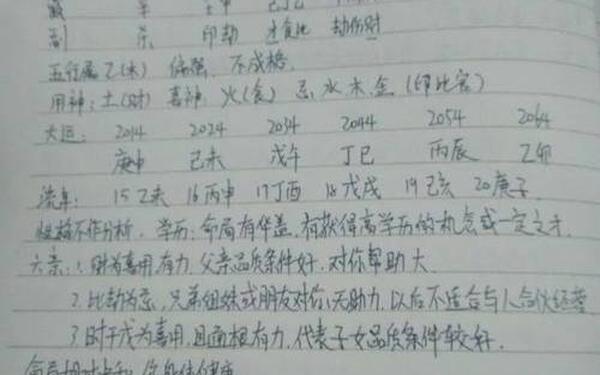 副 杀 印劫 伤食比 劫伤财
五行属乙(木) 偏强、不成格.
用神:土(财) 喜神 火(食) 忌 水木金(印比官)
大运: 2014 2024 2034 2044 2054 2064
庚申 己未 戊午 丁巳 丙辰 乙卯
流年: 15乙未 16丙申 17丁酉 18戊戌 19己亥 20庚子
性格不作分析. 学历:命局有华盖,有获得高学历的机念或一定之才.
六亲:1.财为喜用有力.父亲品质条件好,对你帮助大
2.比劫为忌,兄弟姐妹或朋友对你无助力.以后不适合与人合伙经营
3.时干戊为喜用,且通根有力.代表子女品质条件较好.